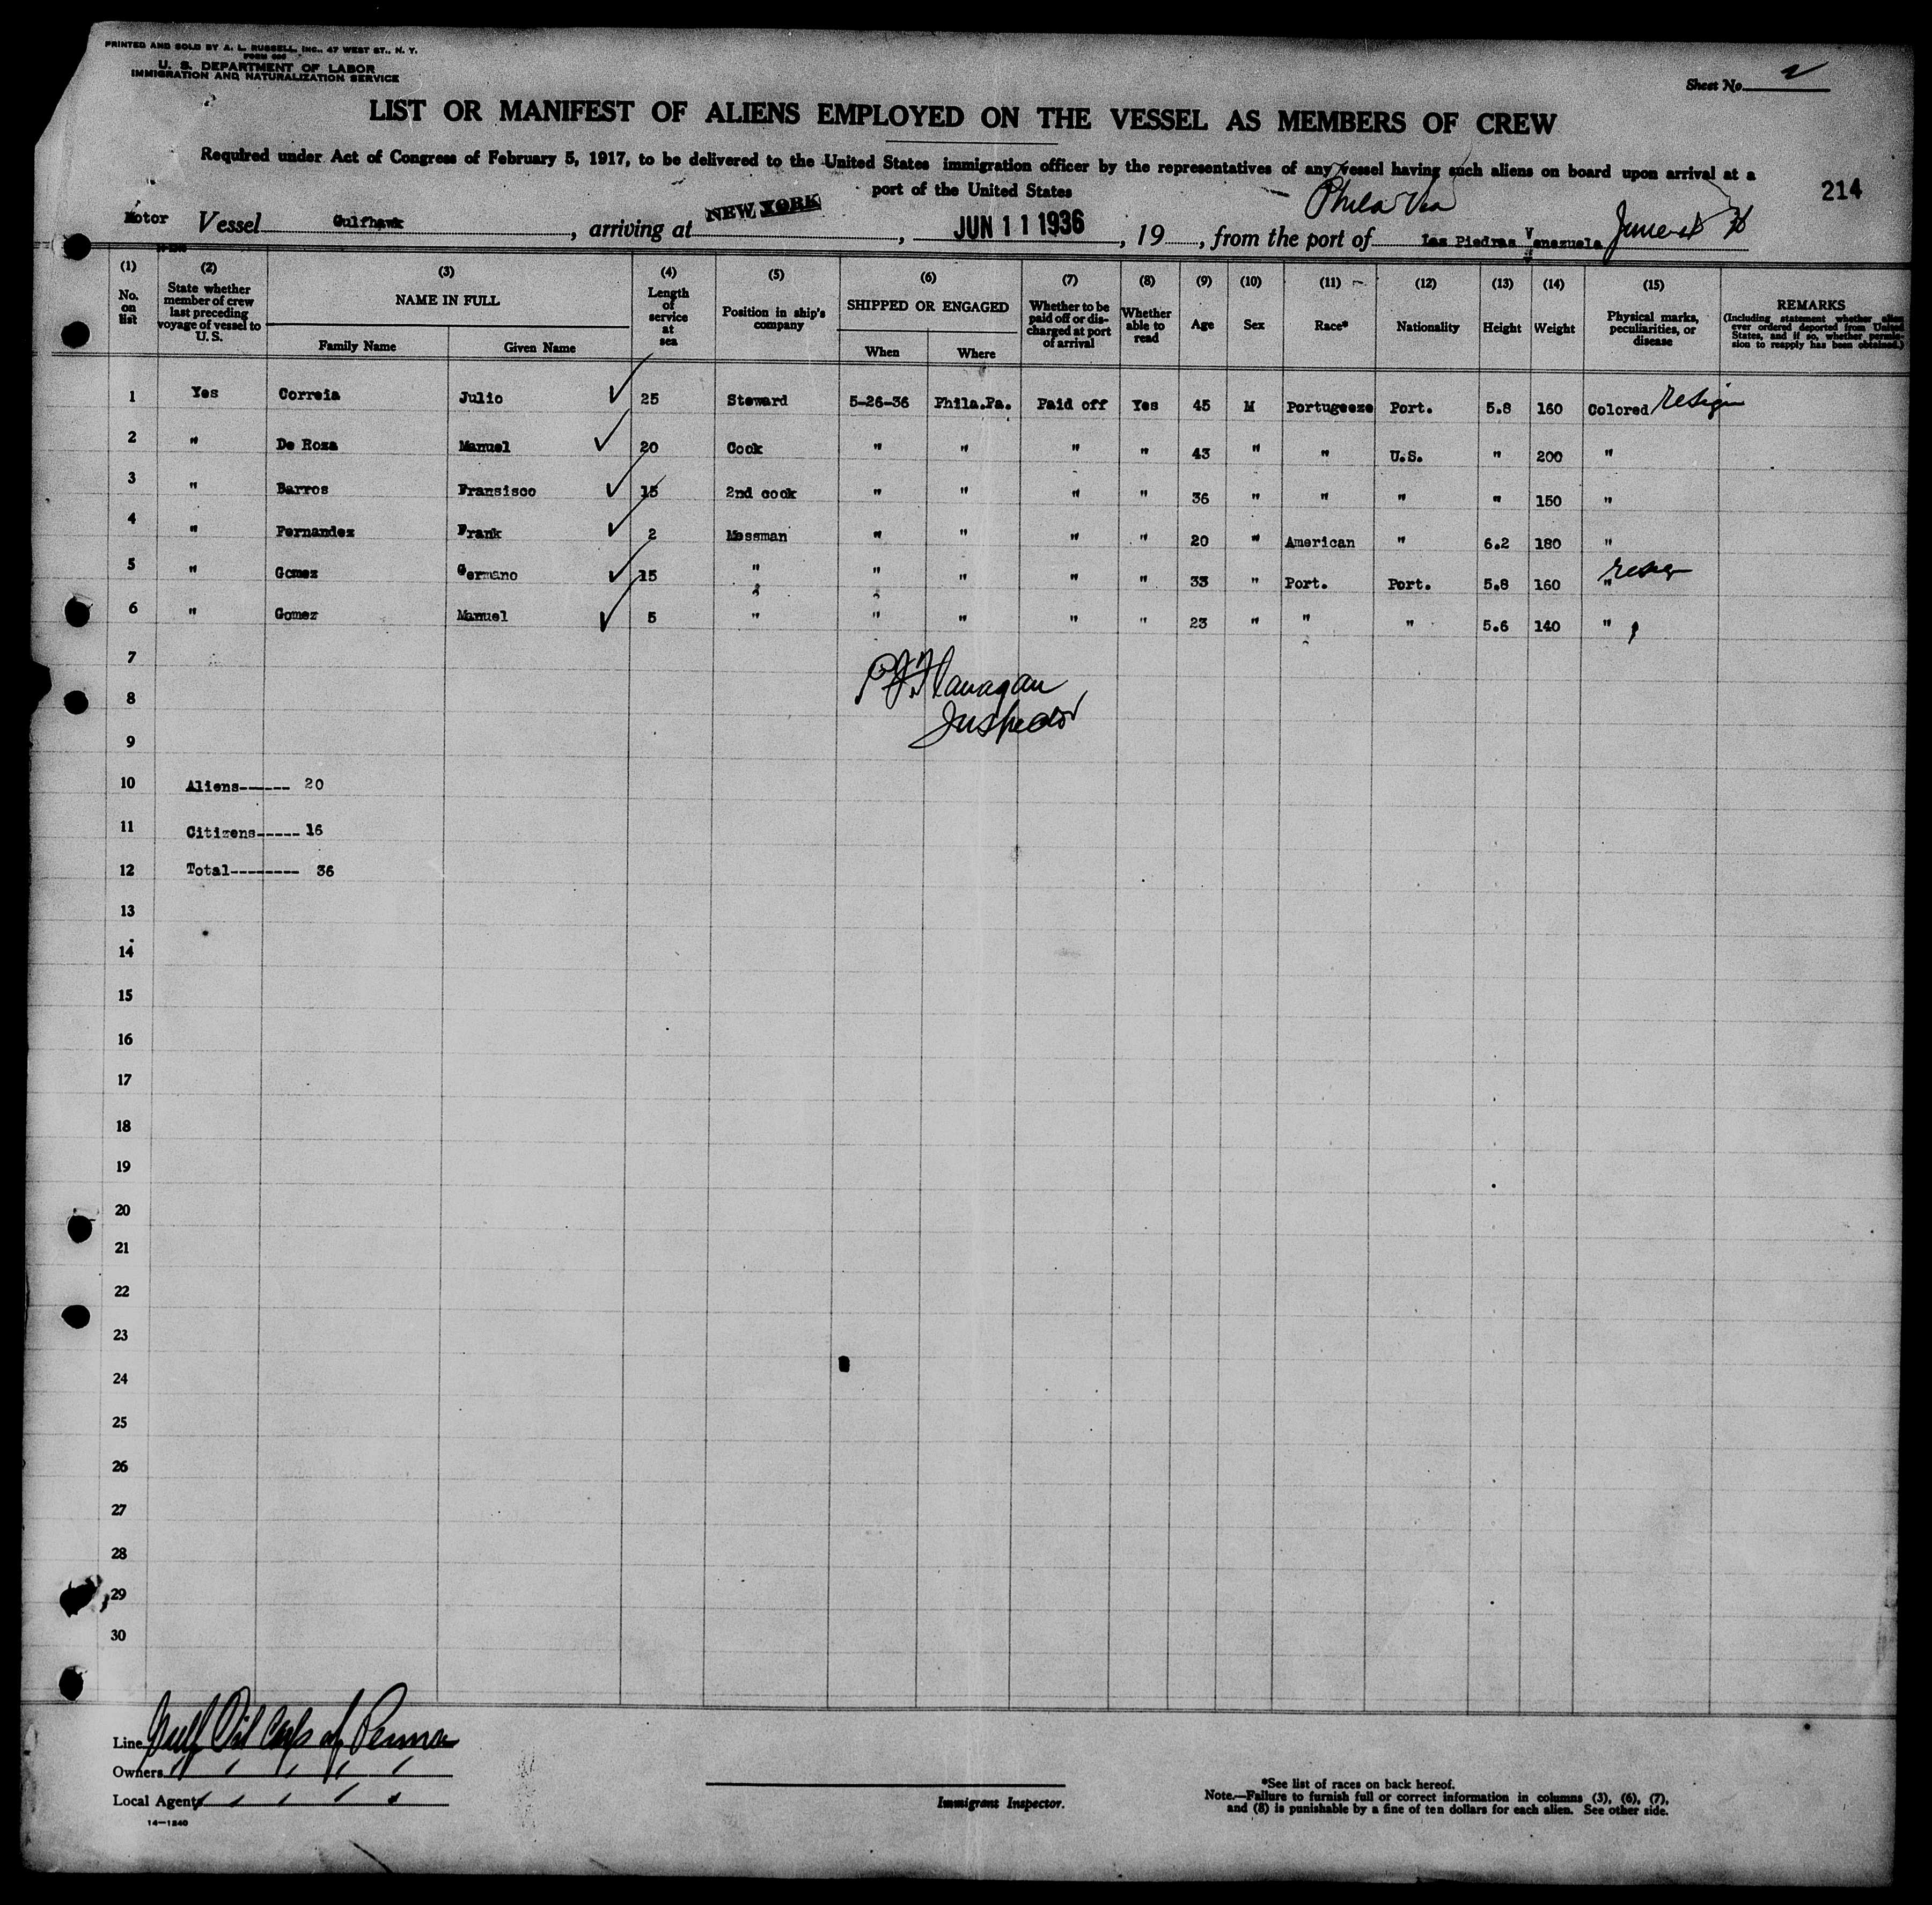 PRINTED AND SOLD BY A. L. RUSSELL, INC., 47 WEST ST., N. Y.
U. S. DEPARTMENT OF LABOR
IMMIGRATION AND NATURALIZATION SERVICE
Sheet No. 2
LIST OR MANIFEST OF ALIENS EMPLOYED ON THE VESSEL AS MEMBERS OF CREW
Required under Act of Congress of February 5, 1917, to be delivered to the United States immigration officer by the representatives of any vessel having such aliens on board upon arrival at a
port of the United States
214
Phila Via
Motor Vessel Gulfhawk, arriving at NEW YORK, JUN 11 1936, 19, from the port of Las Piedras Venezuela June
(1) (2) (3) (4) (5) (6) (7) (8) (9) (10) (11) (12) (13) (14) (15)
No. on list
State whether member of crew last preceding voyage of vessel to U. S.
NAME IN FULL
Family Name
Given Name
Length of service at sea
Position in ship's company
SHIPPED OR ENGAGED
When
Where
Whether to be paid off or discharged at port of arrival
Whether able to read
Age
Sex
Race*
Nationality
Height
Weight
Physical marks, peculiarities, or disease
REMARKS
(Including statement whether alien ever ordered deported from United States, and if so, whether permission to reapply has been obtained.)
1 Yes Correia Julio ✓ 25 Steward 5-26-36 Phila.Pa. Paid off Yes 45 M Portugeeze Port. 5.8 160 Colored resign
2 " De Roza Manuel ✓ 20 Cook " " " " 43 " " U.S. " 200 "
3 " Barros Fransisco ✓ 15 2nd cook " " " " 36 " " " " 150 "
4 " Fernandez Frank ✓ 2 Messman " " " " 20 " American " 6.2 180 "
5 " Gomez Germano ✓ 15 " " " " " 33 " Port. Port. 5.8 160 " resign
6 " Gomez Manuel ✓ 5 " " " " " 23 " " " 5.6 140 "
7
8
9
P.J. Flanagan
Inspector
10 Aliens------ 20
11 Citizens----- 16
12 Total-------- 36
13
14
15
16
17
18
19
20
21
22
23
24
25
26
27
28
29
30
Line Gulf Oil Corp of Penna
Owners " " " " "
Local Agents " " " " "
14—1240
Immigrant Inspector.
*See list of races on back hereof.
Note.—Failure to furnish full or correct information in columns (3), (6), (7),
and (8) is punishable by a fine of ten dollars for each alien. See other side.